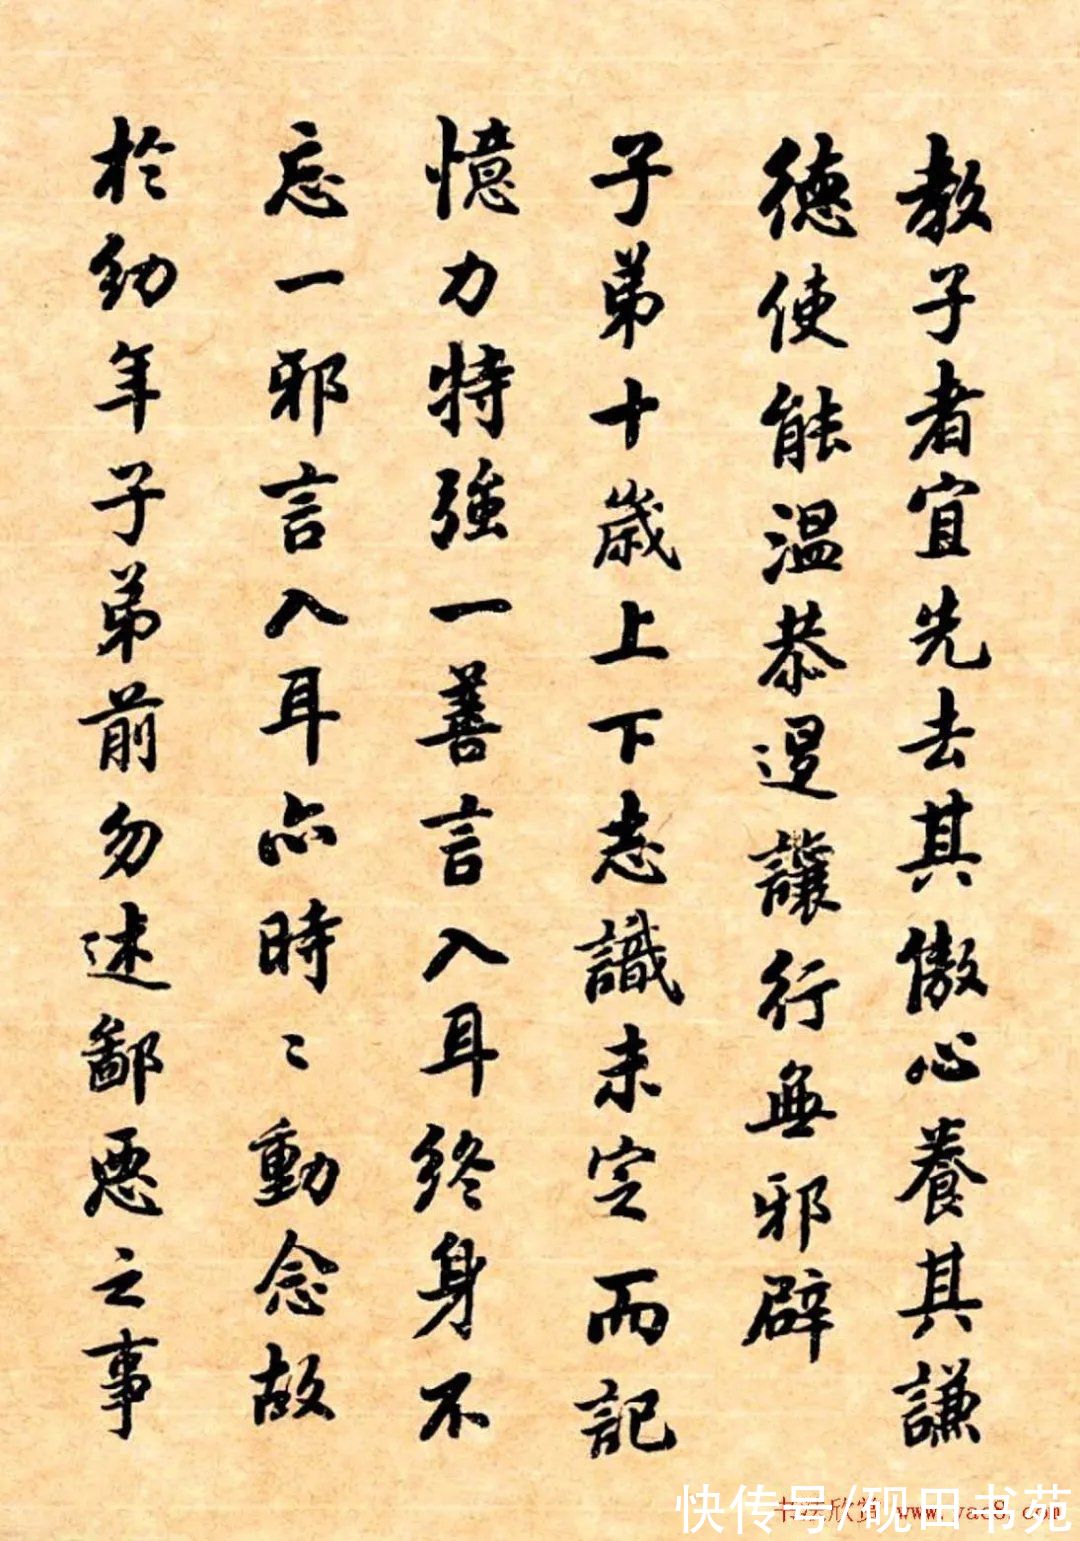 教子者宜先去其傲心養其謙
德使能溫恭退讓行無邪辟
子弟十歲上下志識未定而記
憶力特強一善言入耳終身不
忘一邪言入耳亦時〻動念故
於幼年子弟前勿述鄙惡之事
书法欣赏 www.yac8.com
快传号/砚田书苑